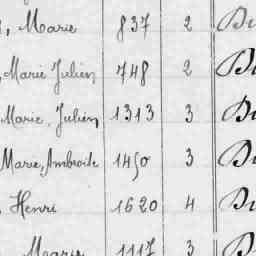 , Marie 837 2 Du
, Marie Julien 748 2 Du
Marie, Julien 1313 3 Du
Marie, Ambroise 1450 3 Du
, Henri 1620 4 Du
Marie 1117 3 Du